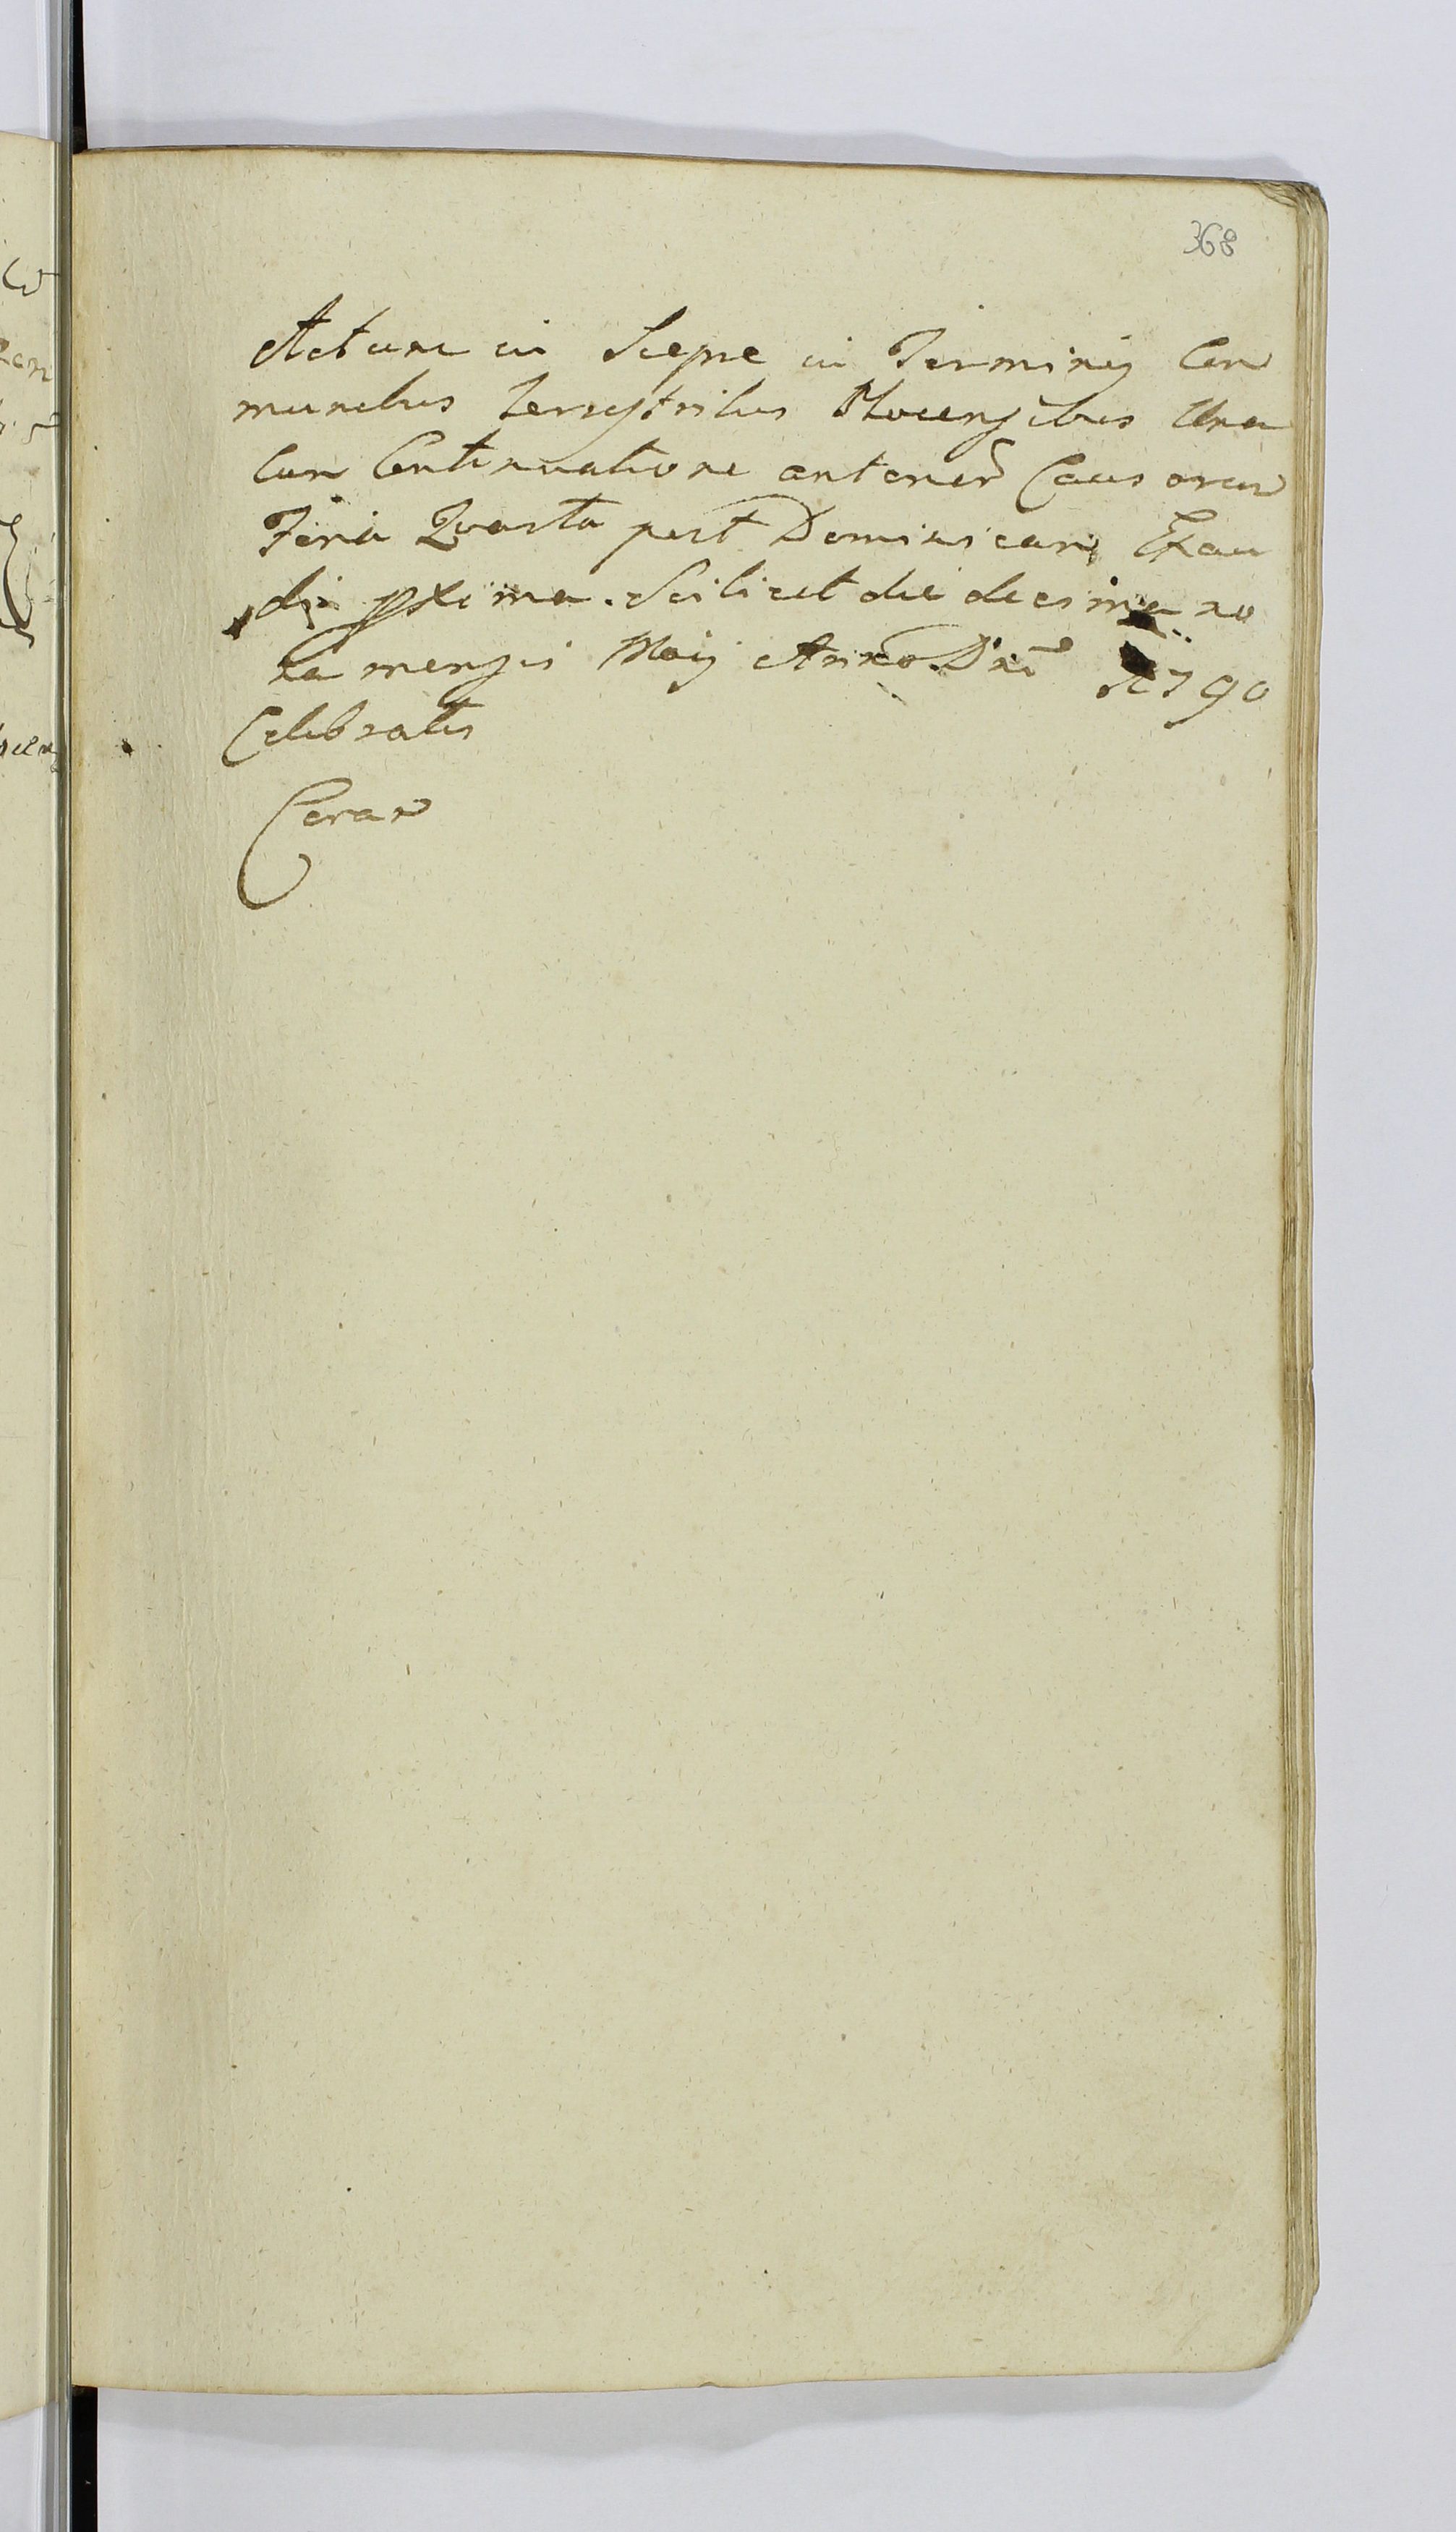 368
Actum in Siepre in Terminis Com
munibus Terrestribus Plocensibus Una
Cum Continuatione anterier Causarum
Feria Quarta post Dominicam Exau
di pxima. Scilicet die decima no
na mensis Maij Anno Dni 1790
Celebratis
Coram